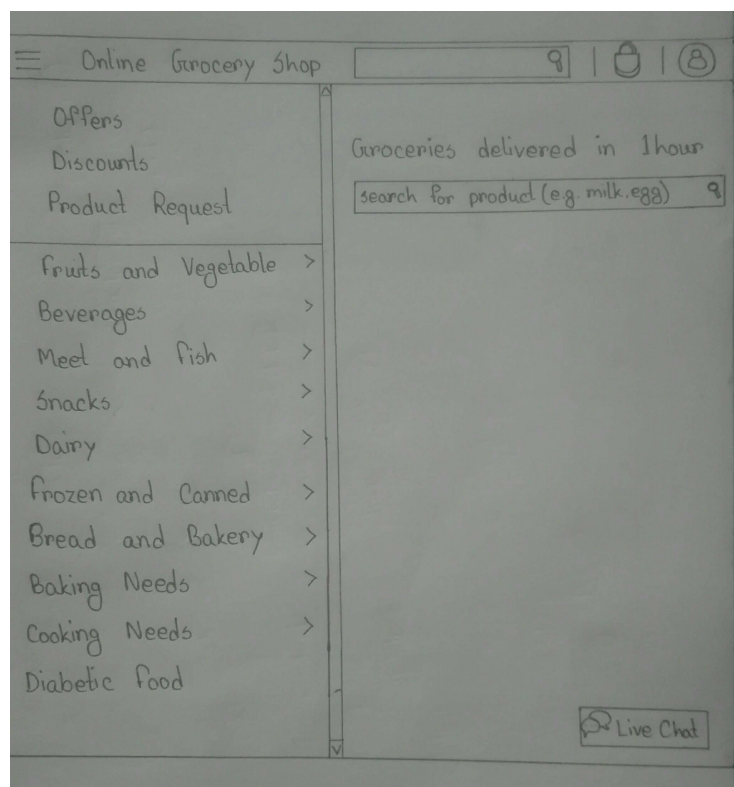 Online Grocery Shop
Offers
Discounts
Product Request
Fruits and Vegetable >
Beverages >
Meet and fish >
Snacks >
Dairy >
Frozen and Canned >
Bread and Bakery >
Baking Needs >
Cooking Needs >
Diabetic food
Groceries delivered in 1hour
search for product (e.g. milk.egg)
Live Chat